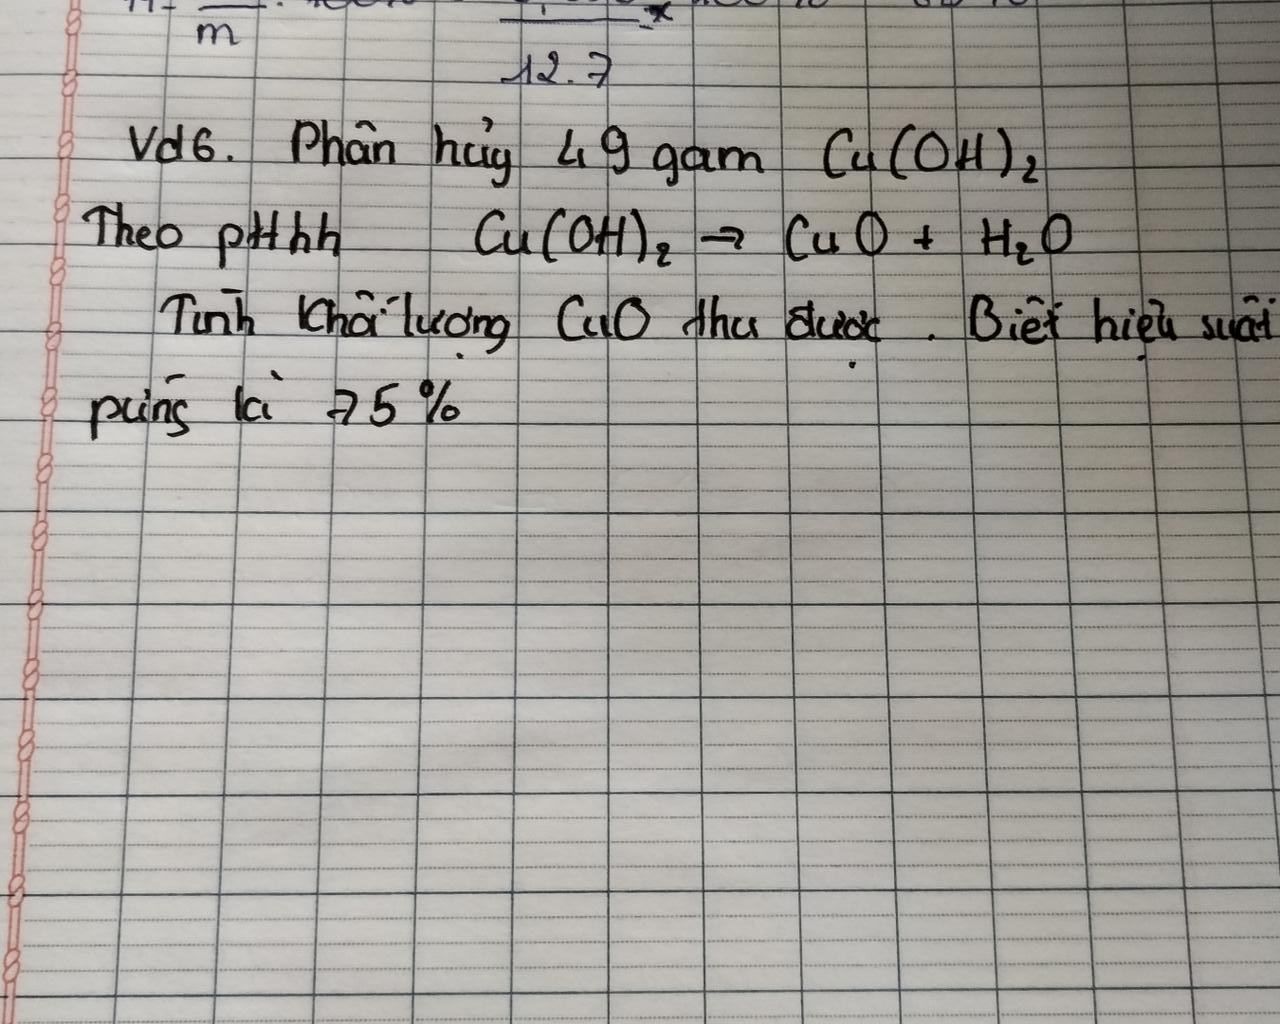 m
12.7
Vd6. Phân hủy 49 gam Cu(OH)₂
Theo pthh Cu(OH)₂ → CuO + H₂O
Tính khối lượng CuO thu được. Biết hiệu suất
pứng là 75%